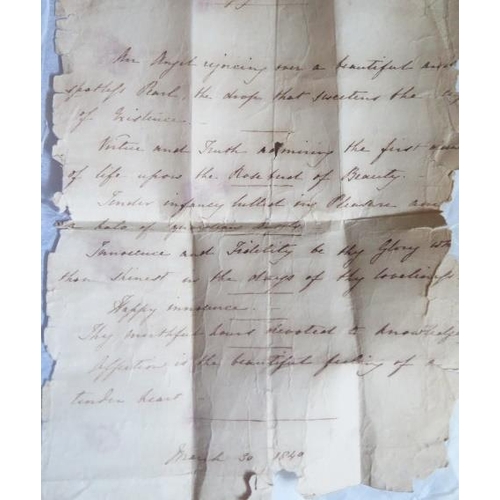 An Angel rejoicing over a beautiful and
spotless Pearl, the drop that sweetens the
of Existence
Virtue and Truth admiring the first
of life upon the Rose bud of Beauty.
Tender infancy lulled in Pleasure
a halo of guardian
Innocence and Fidelity be thy Glory
thou shinest in the days of thy loveliness
Happy innocence.
Thy youthful hours devoted to knowledge
Affection is the beautiful feeling of a
tender heart
March 30 1849